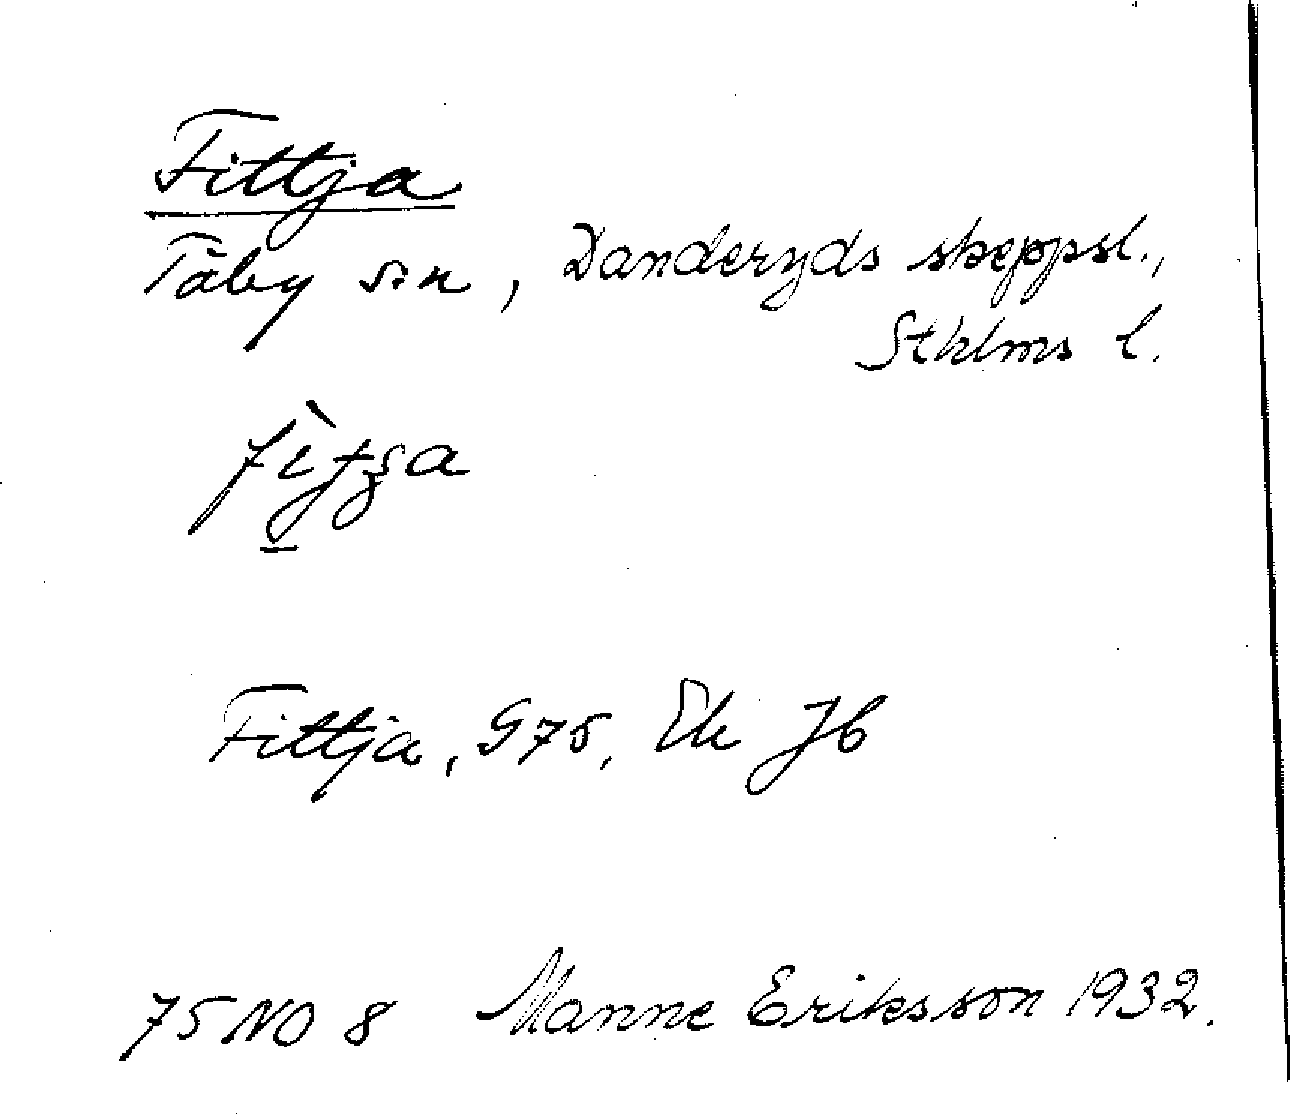 Fittja
Täby sn, Danderyds skeppsl.,
Sthlms l.
Fittja, G75, Ek Jb
75 NO 8 Manne Eriksson 1932.